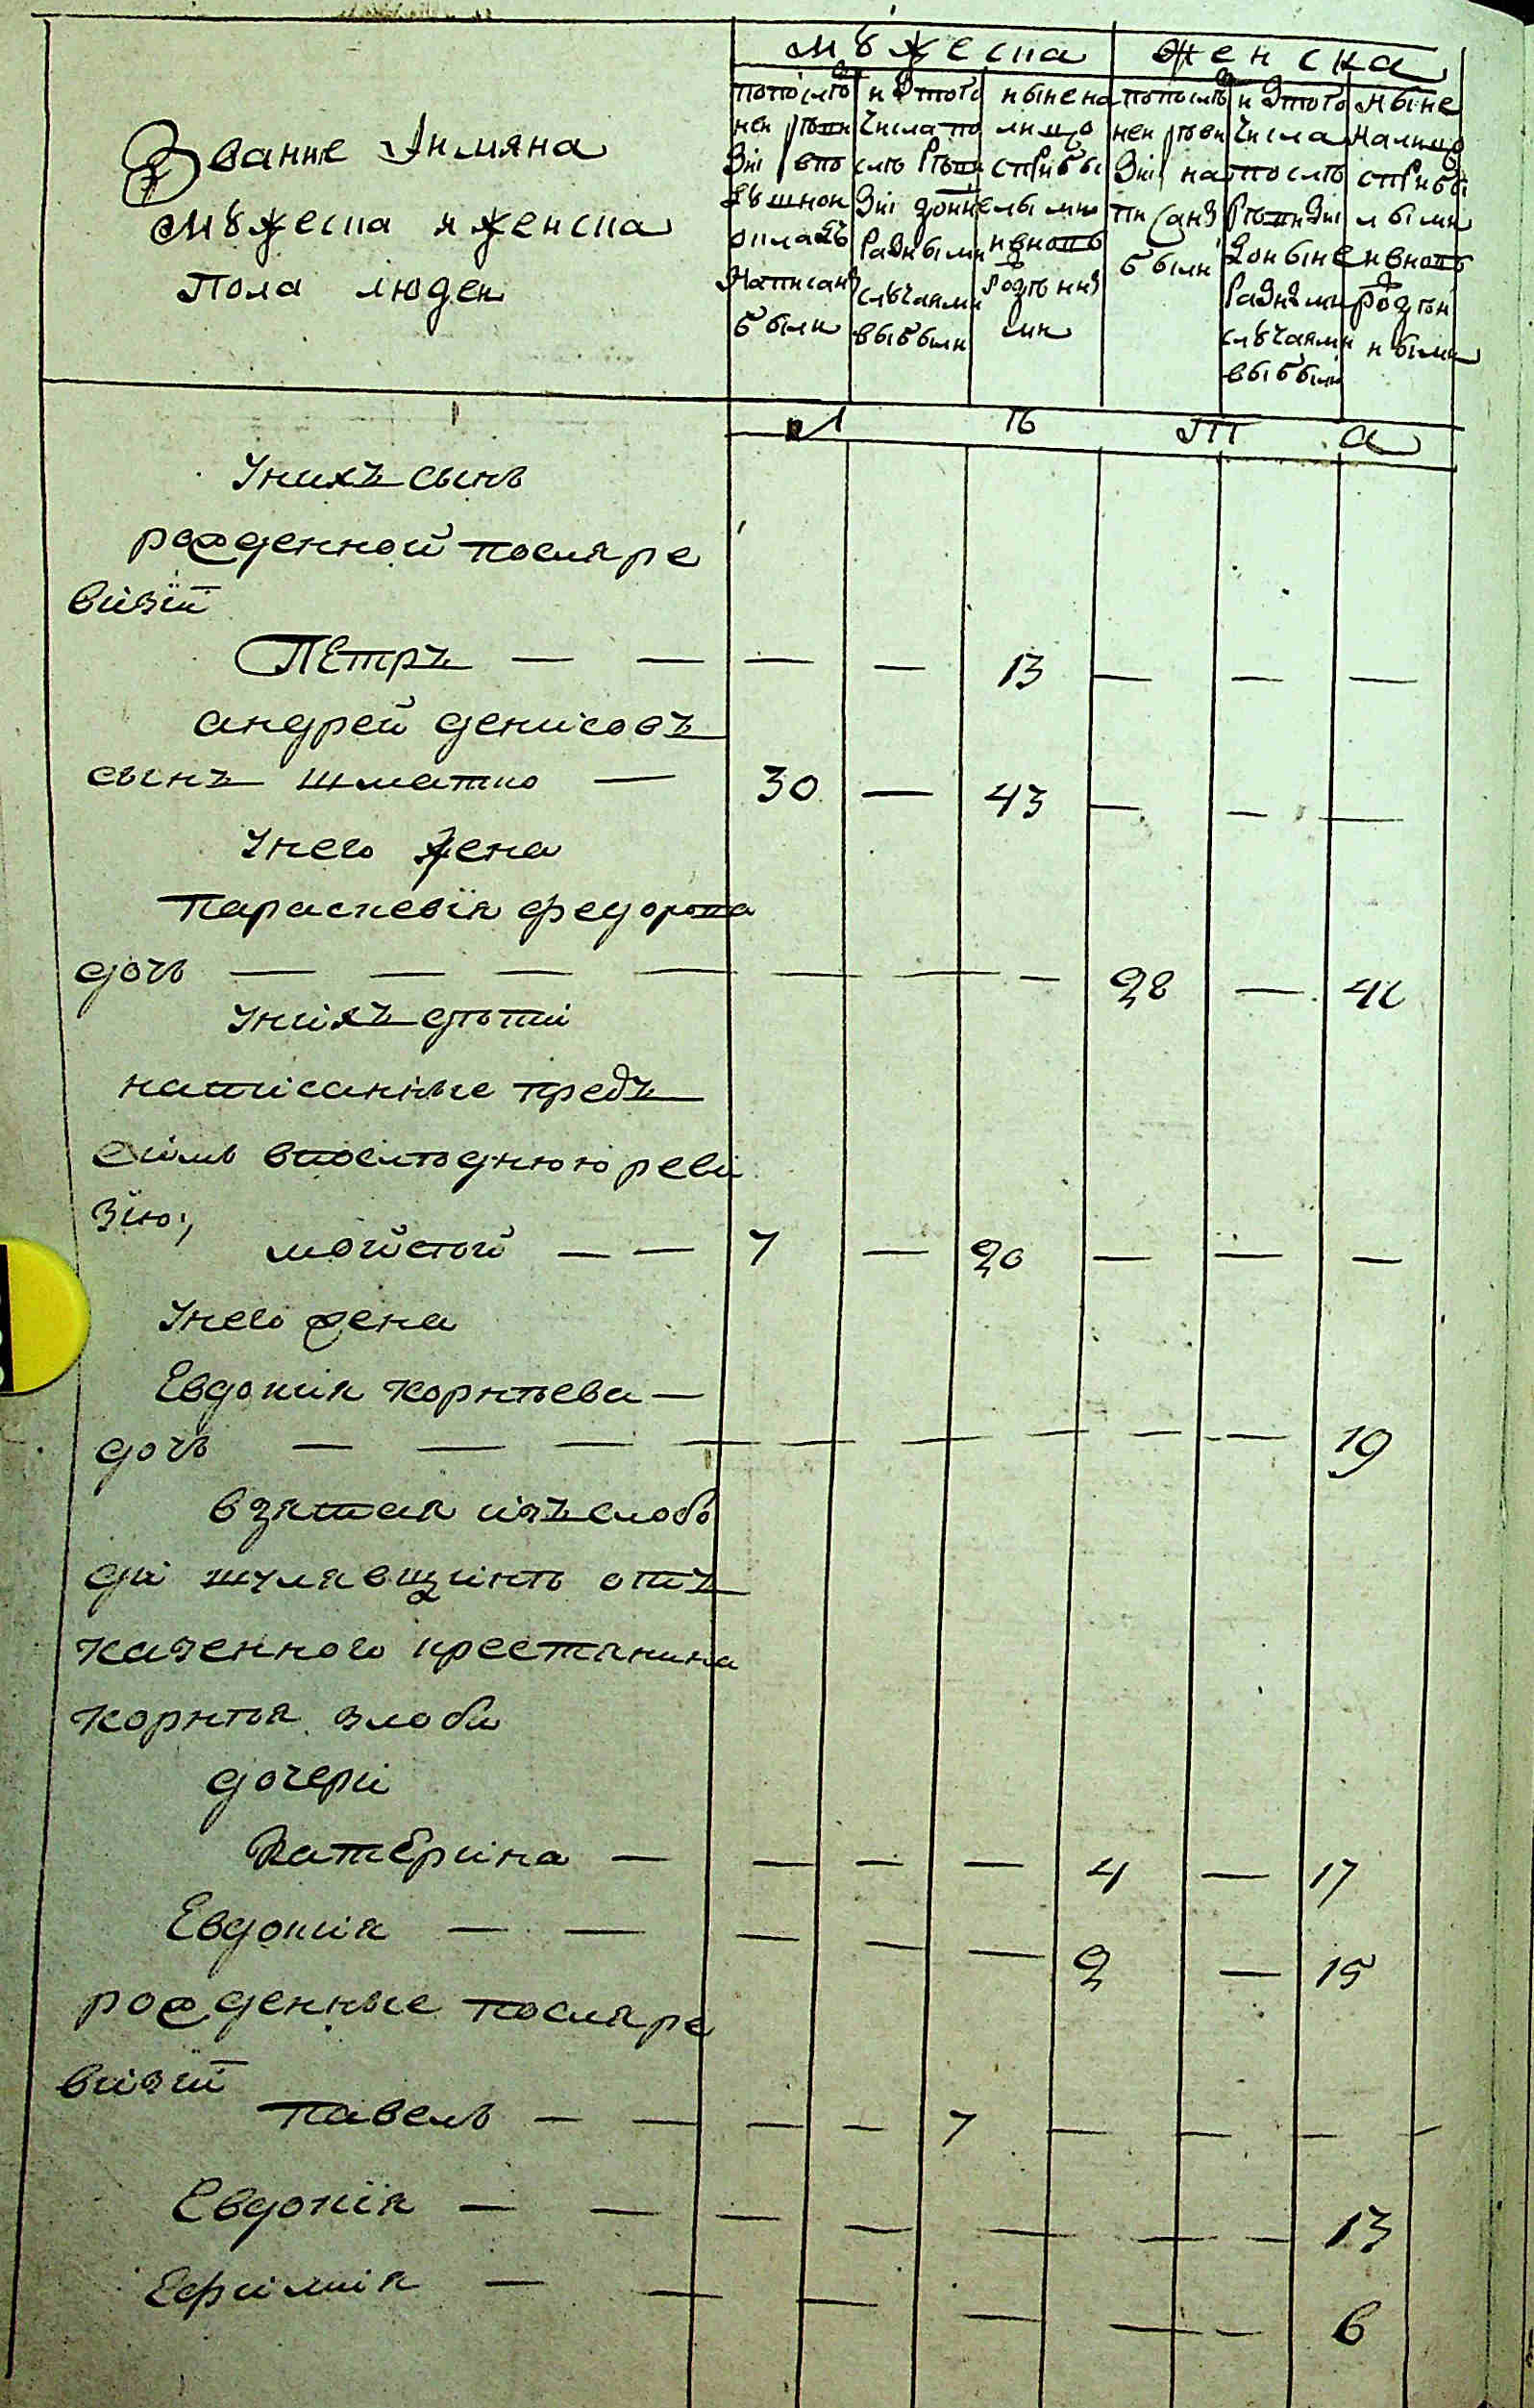 мужеска женска
Звание Јимяна
мужеска и женска
Пола людеи
по последней ревизии в подушном окладе написанӡ были
из этого числа после ревизии до ныне разными случаями выбыли
ныне на лицо с прибылыми и вновь рожденными
по последней ревизии написанӡ были
из этого числа после ревизии до ныне разными случаями выбыли
ныне на лицо с прибылыми и вновь рождеными
Л Ѣ Т А
Унихъ сынъ
рожденной посля ре
визїи
Петръ — — — — 13 — — —
андрей денисовъ
сынъ шматко — 30 — 43 — — —
Унего жена
параскевїя федорова
дочь — — — — — — — 28 — 41
Унихъ дѣти
написанные предъ
симъ впослѣднюю реви
зїю;
мойсѣй — — 7 — 20 — — —
Унего жена
Евдокия корнѣева —
дочь — — — — — — — — — 19
взятая изъ слобо
ди шулявщинѣ отъ
казенного крестянина
корнѣя злоби
дочери
Катерина — — — — 4 — 17
Евдокия — — — — — 2 — 15
рожденные посля ре
визїи
павелъ — — — — 7 — — — —
Евдокїя — — — — — — — 13
Ефимия — — — — — — 6